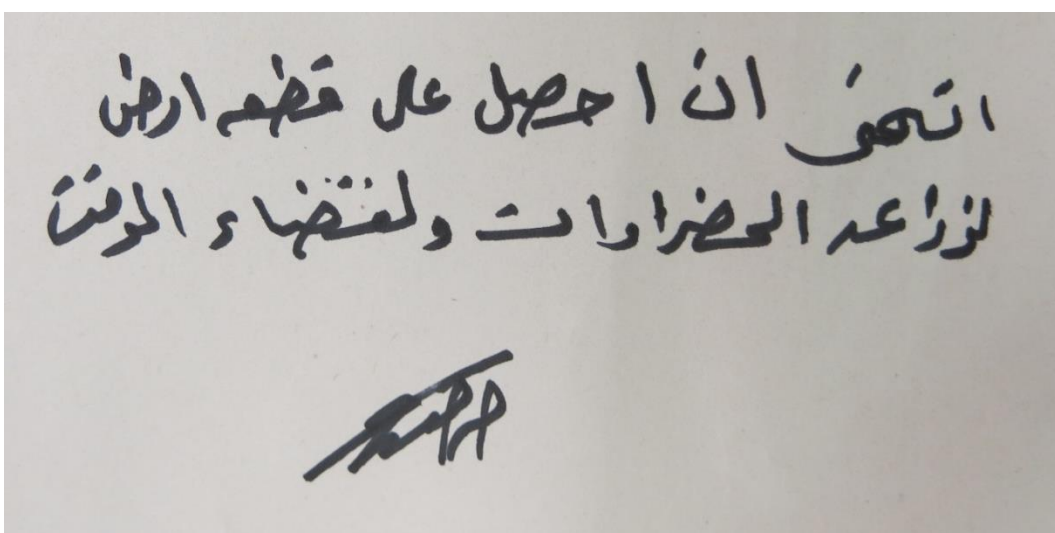 اتمنى ان احصل على قطعه ارض
لزراعه الخضراوات ولقضاء الوقت